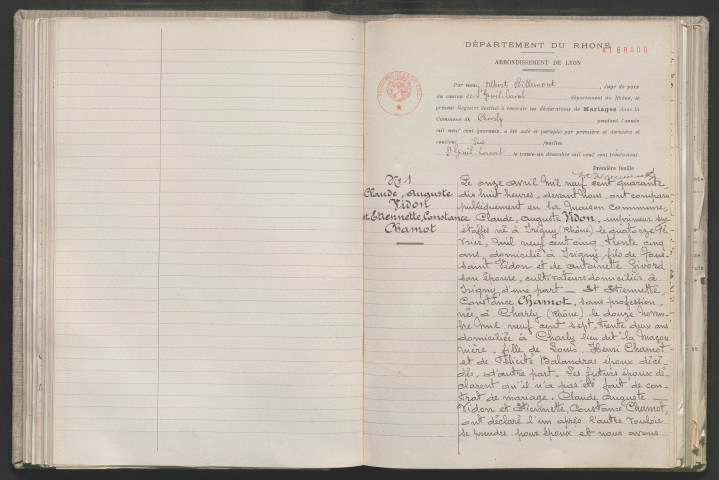 DÉPARTEMENT DU RHONE
ARRONDISSEMENT DE LYON
Par nous, Albert Juge de paix
du canton de St Genis-Laval département du Rhône, le
présent Registre destiné à recevoir les déclarations de Mariages dans la
Commune de Charly pendant l'année
mil neuf cent quarante, a été coté et paraphé par première et dernière et
contient six feuillets.
St Genis-Laval le trente-un décembre mil neuf cent trente-neuf.
Première feuille
No 1
Claude, Auguste
Vidon
et Etiennette, Constance
Chamot
Le onze avril mil neuf cent quarante
dix huit heures, devant nous, ont comparu
publiquement en la maison commune,
Claude, Auguste Vidon, imprimeur sur
étoffes né à Irigny (Rhône) le quatorze fé-
vrier, mil neuf cent cinq, trente cinq
ans, domicilié à Irigny, fils de Tous-
saint Vidon et de Antoinette Givord
son épouse, cultivateurs domiciliés à
Irigny, d'une part _ Et Etiennette,
Constance Chamot, sans profession,
née à Charly (Rhône) le douze novem-
bre mil neuf cent sept, trente deux ans
domiciliée à Charly lieu dit la Maçon
nière, fille de Louis, Henri Chamot
et de Félicité Balandras époux décé-
dés, d'autre part. Les futurs époux dé-
clarent qu'il n'a pas été fait de con-
trat de mariage. Claude Auguste _
Vidon et Etiennette, Constance Chamot,
ont déclaré l'un après l'autre vouloir
se prendre pour époux et nous avons